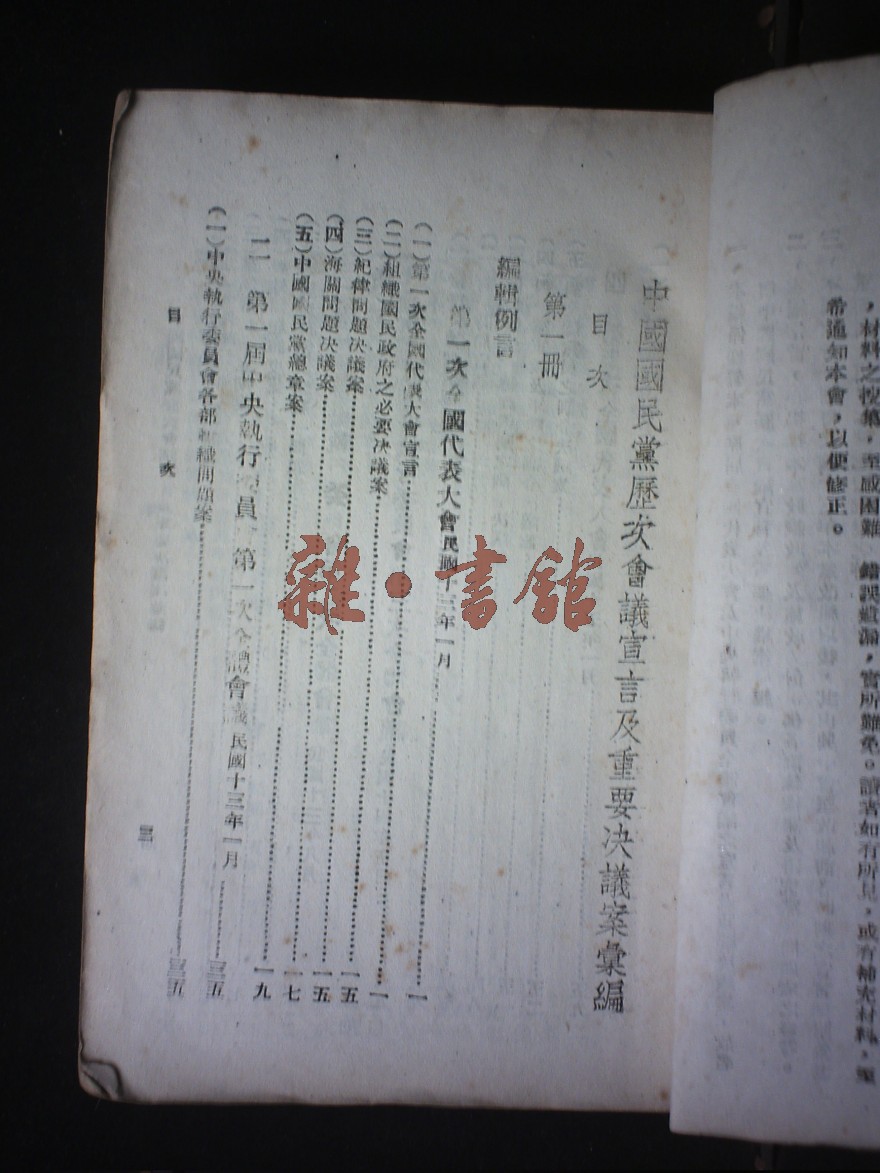 ，材料之搜集，至感困難　錯誤遺漏，實所難免。讀者如有所見，或有補充材料，至
希通知本會，以便修正。
中國國民黨歷次會議宣言及重要決議案彙編
目次
第一冊
編輯例言
第一次全國代表大會民國十三年一月……一
（一）第一次全國代表大會宣言……一
（二）組織國民政府之必要決議案……一五
（三）紀律問題決議案……一五
（四）海關問題決議案……一七
（五）中國國民黨總章案……一九
二　第一屆中央執行委員　第一次全體會議民國十三年一月……三五
（一）中央執行委員會各部組織問題案……三五
目次
三
雜·書館